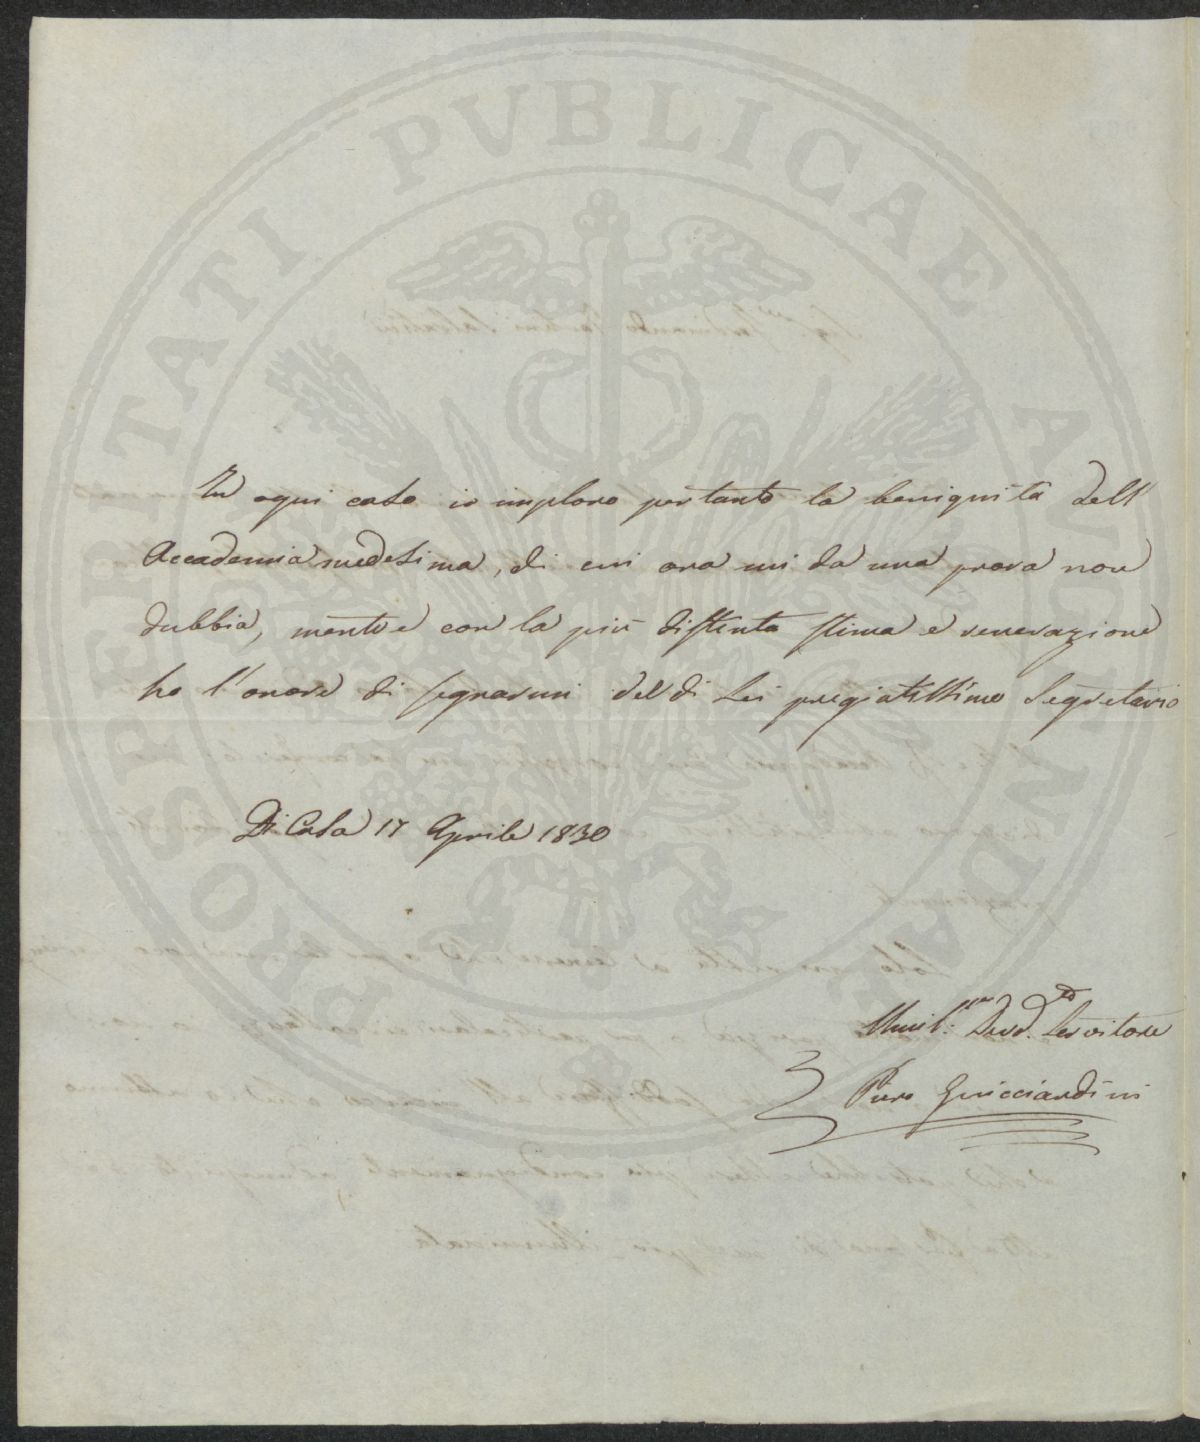 PROSPERITATI PVBLICAE AVGENDAE
In ogni caso io imploro pertanto la benignità dell'
Accademia medesima, di cui ora mi da una prova non
dubbia, mentre con la più distinta stima e venerazione
ho l'onore di segnarmi del di Lei pregiatissimo Segretario
Di Casa 17 Aprile 1830
Umil.mo Devd. Servitore
Piero Guicciardini